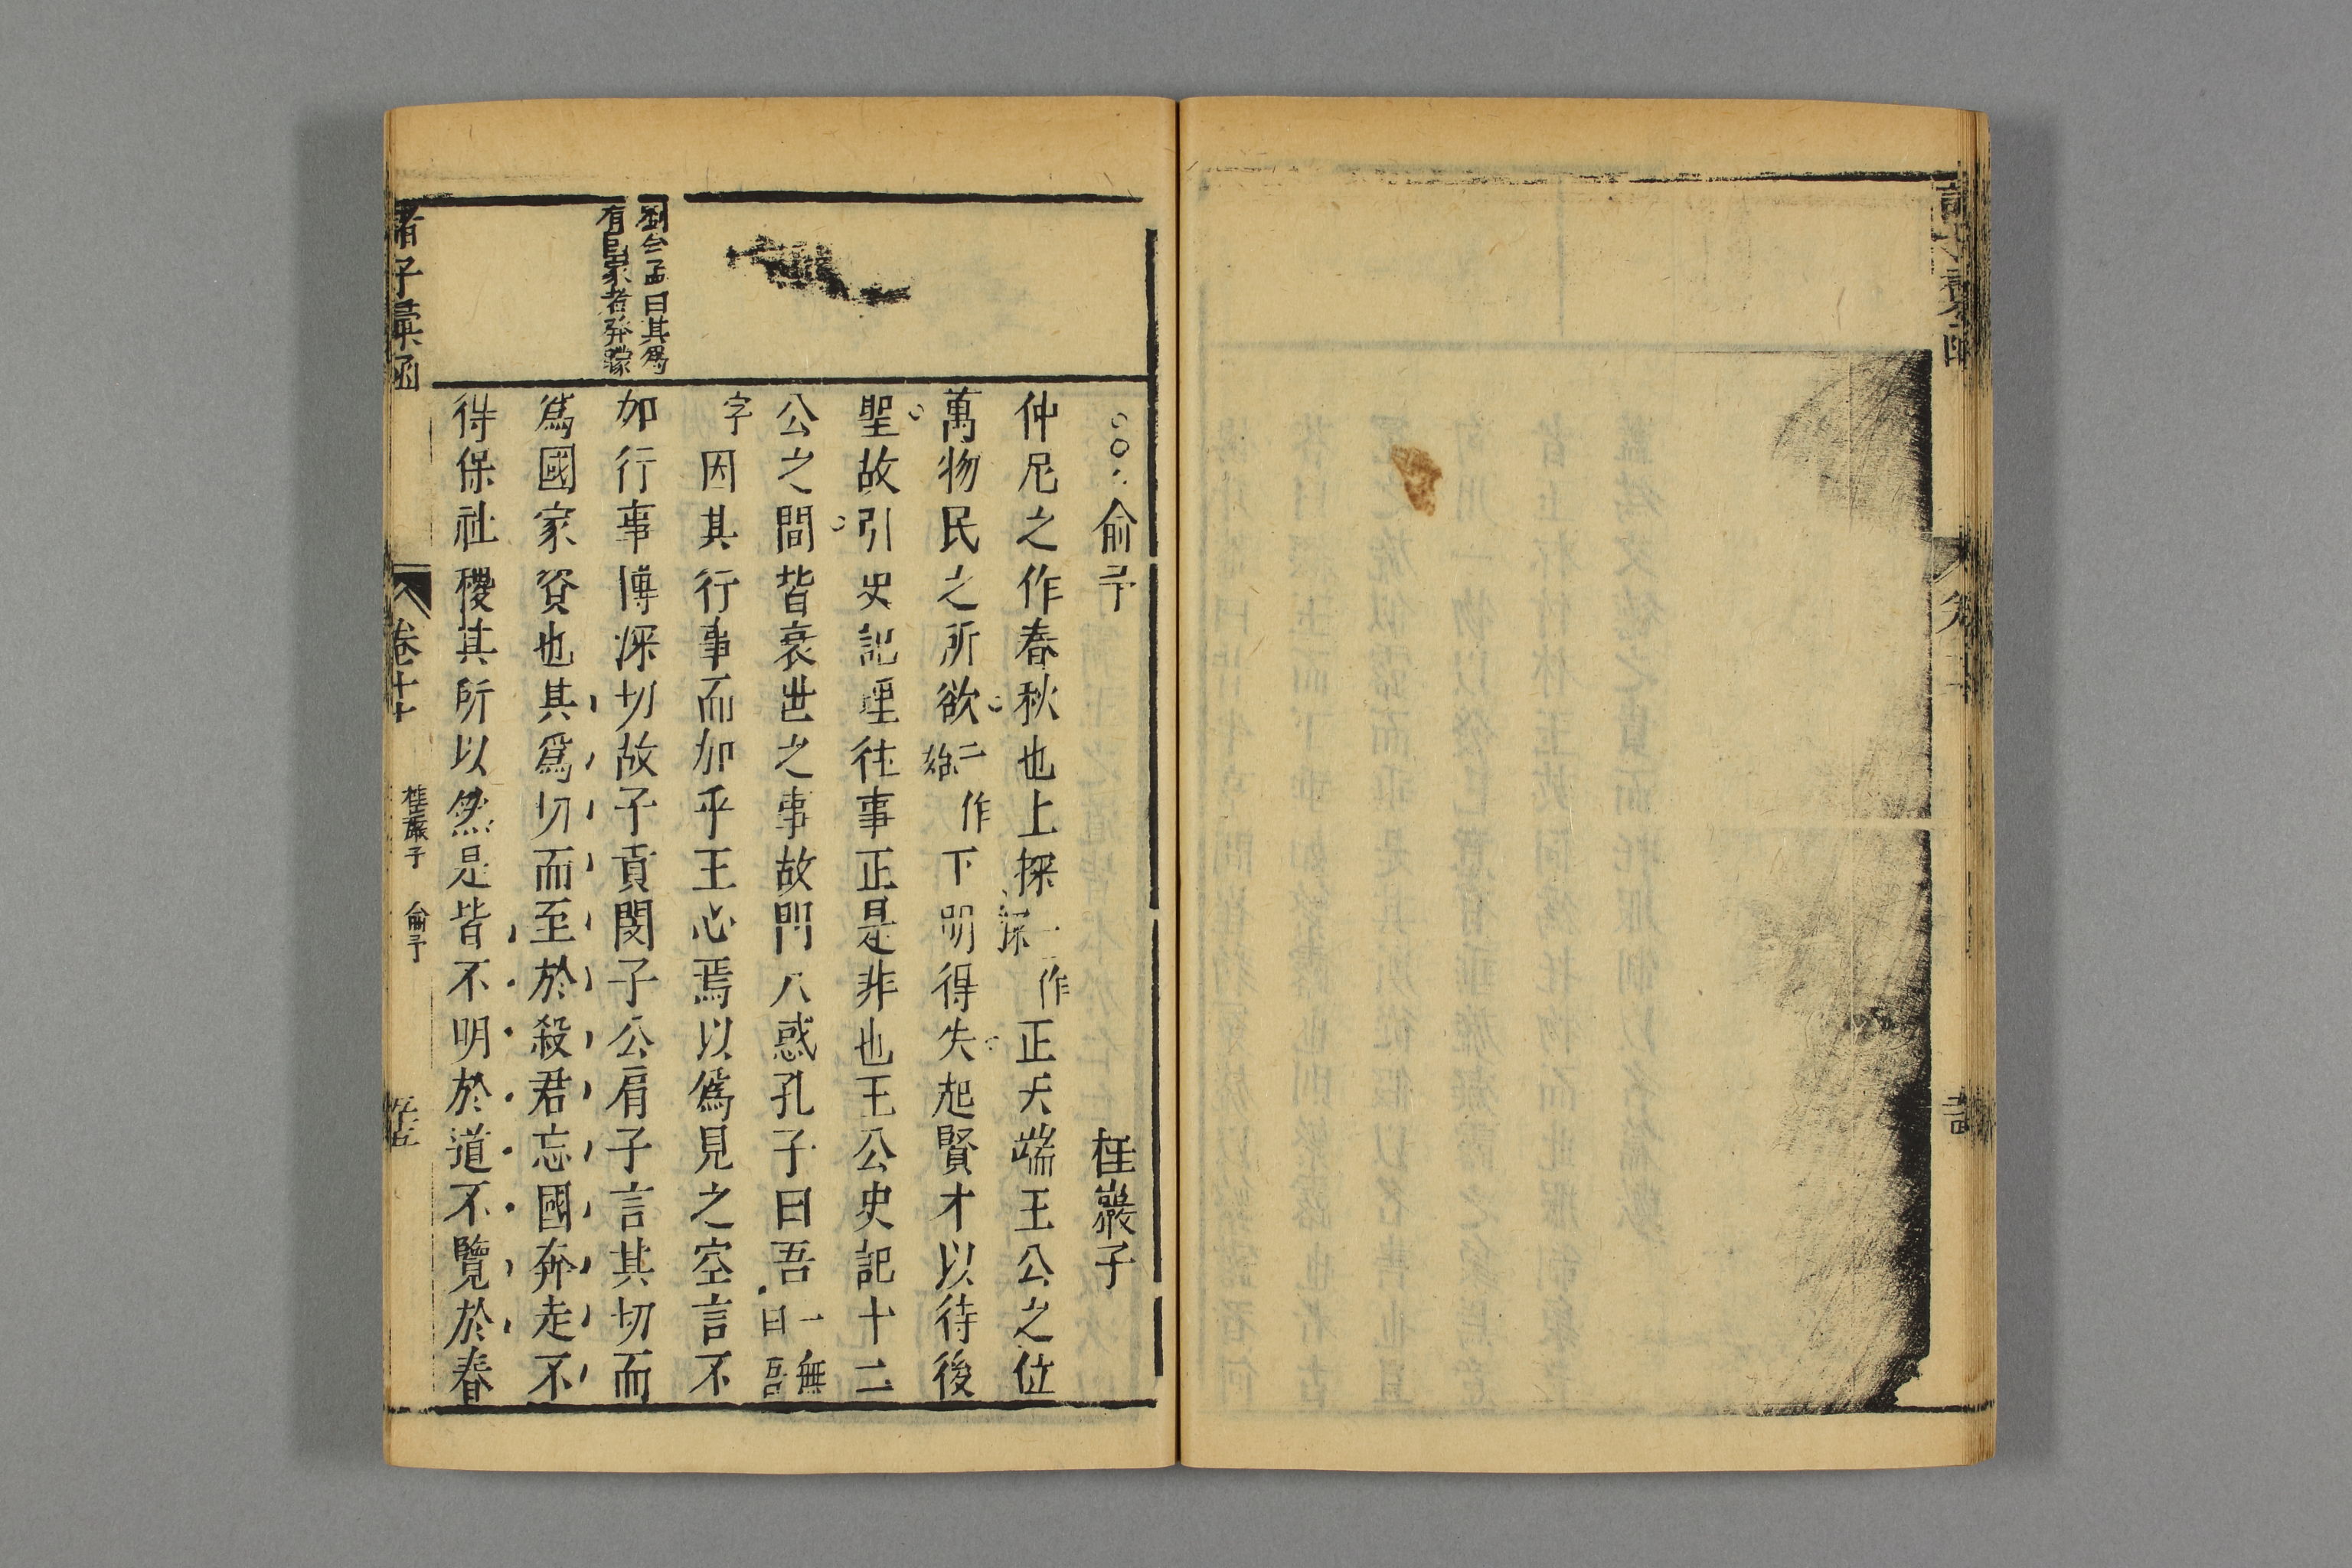 俞子 桂巖子
仲尼之作春秋也上探一作深正天端王公之位
萬物民之所欲一作始下明得失起賢才以待後
聖故引史記理往事正是非也王公史記十二
公之間皆衰世之事故門人惑孔子曰吾一無曰吾
字因其行事而加乎王心焉以爲見之空言不
如行事博深切故子貢閔子公肩子言其切而
爲國家資也其爲切而至於殺君忘國奔走不
得保社稷其所以然是皆不明於道不覽於春
劉公孟曰其爲
有國家者弊蹤
諸子彙函
卷十
桂巖子 俞子